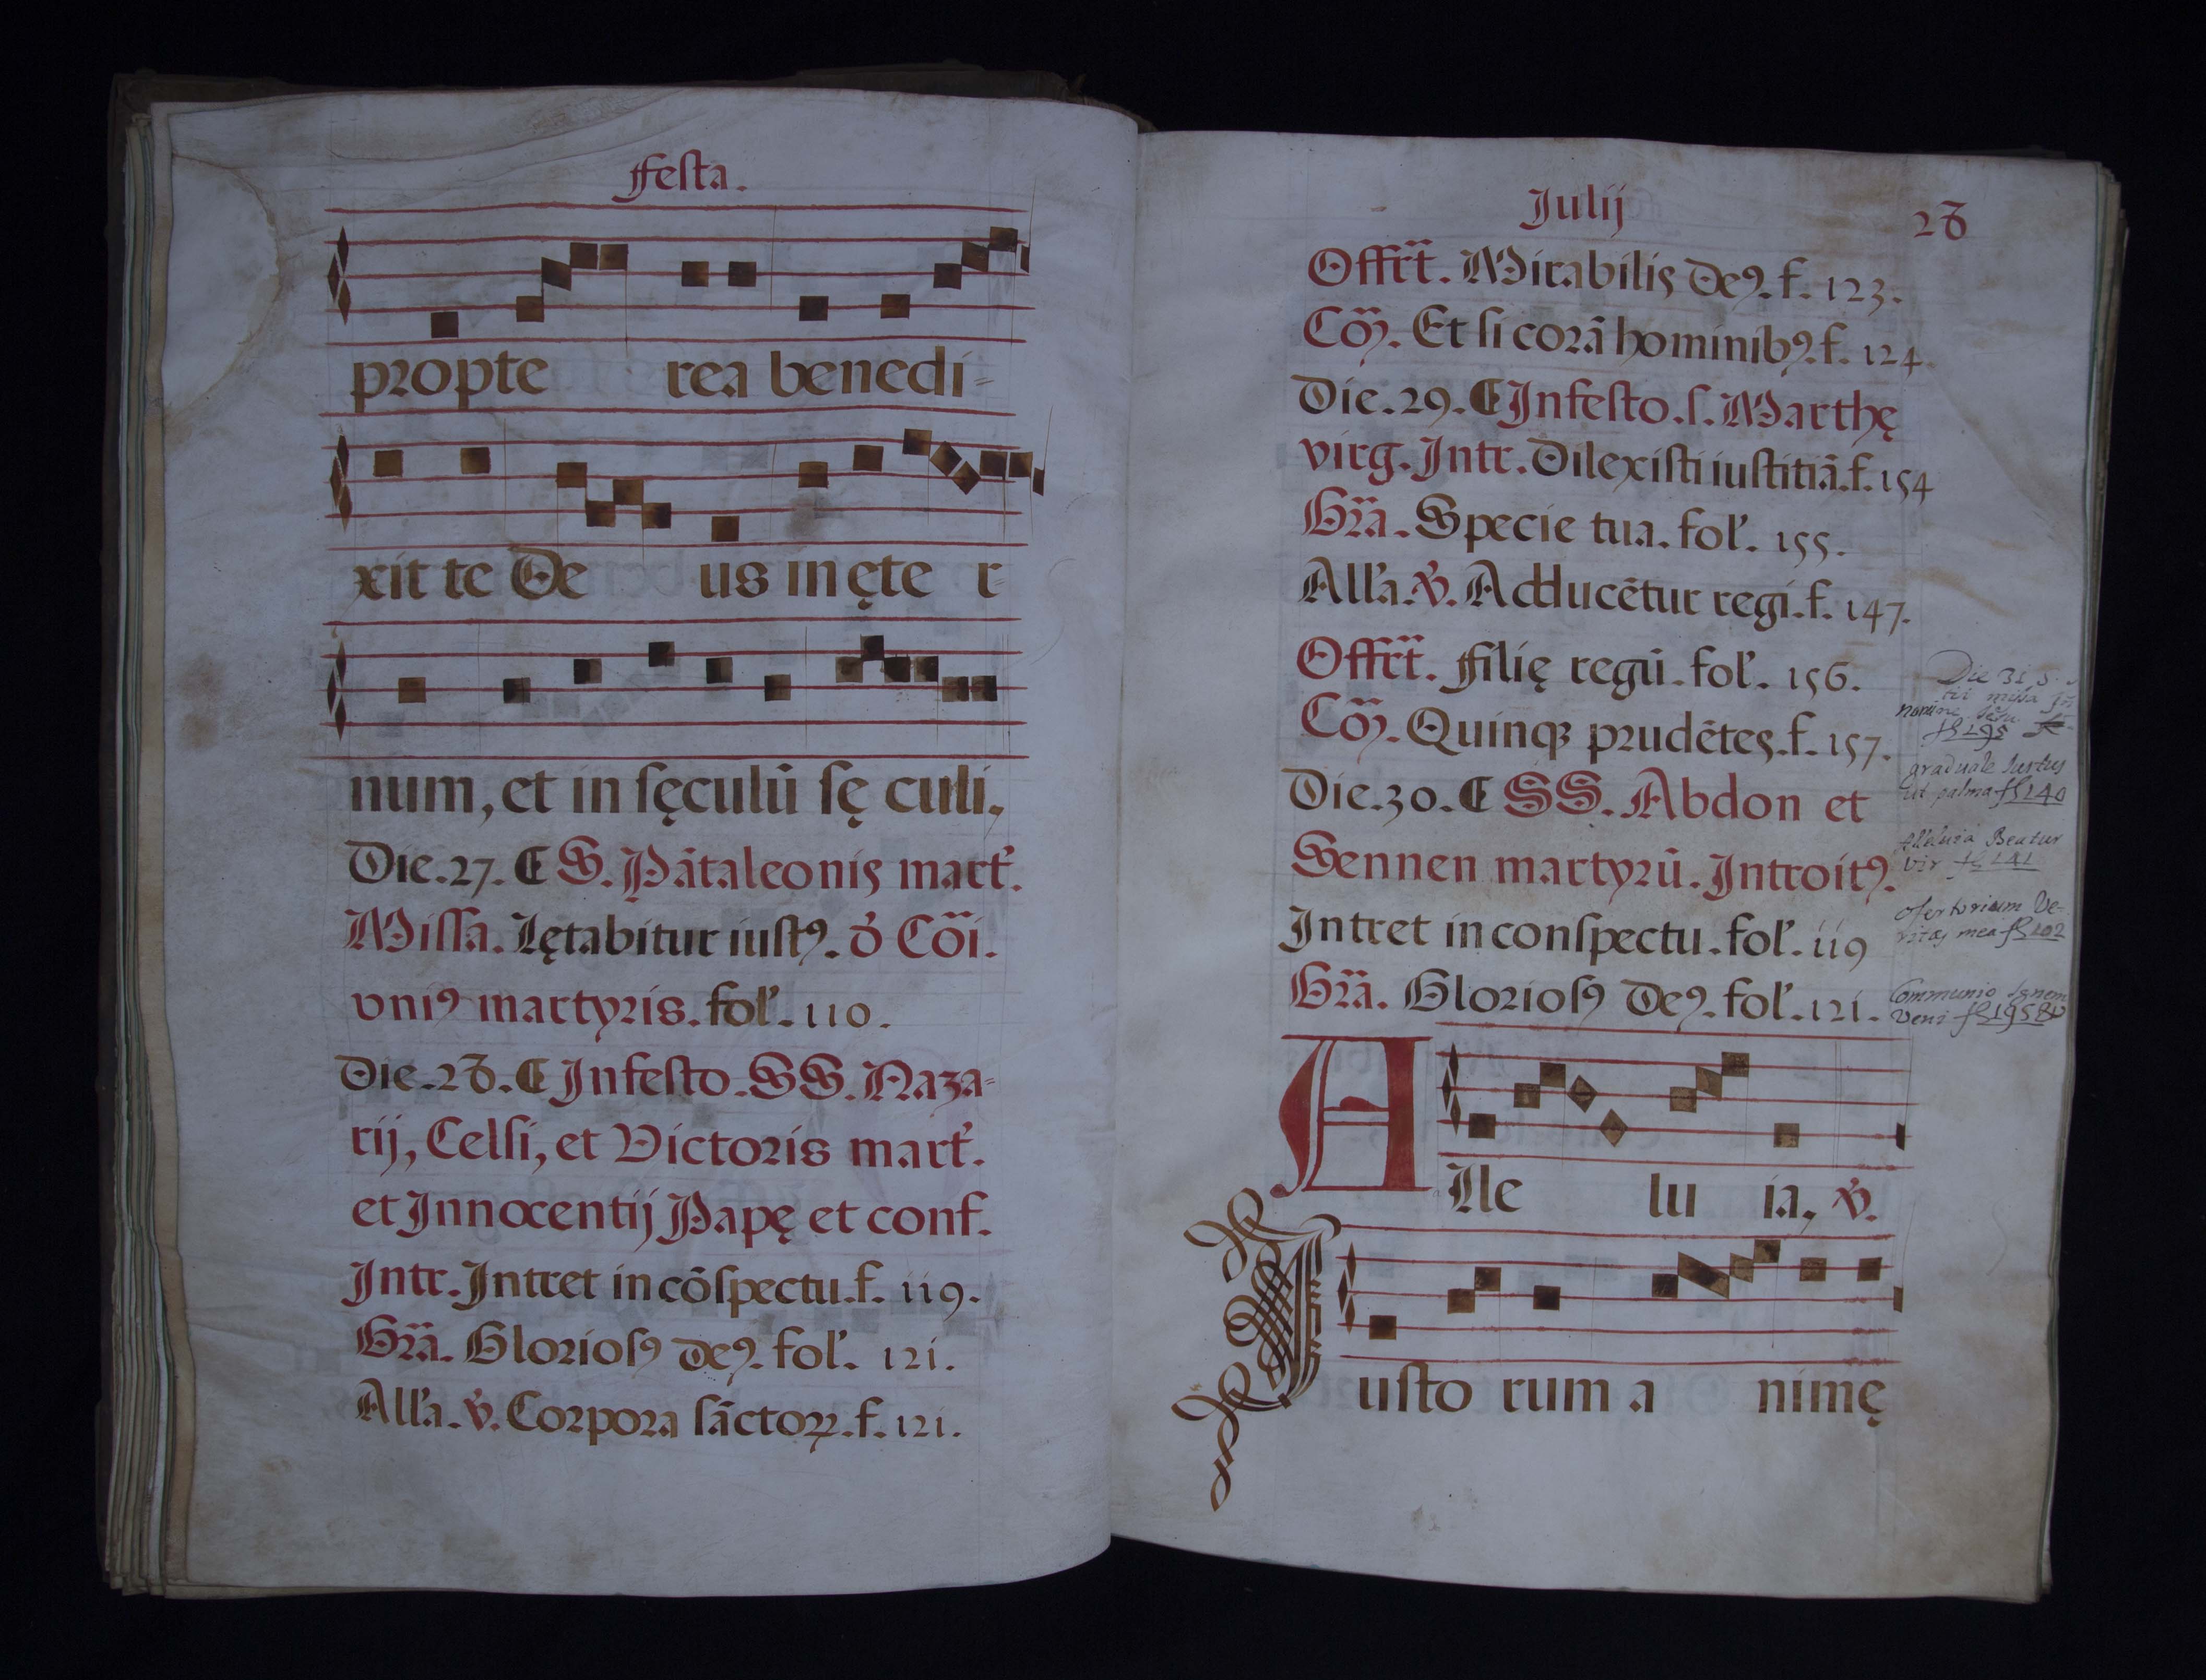 Festa.
propte rea benedi-
xit te De us in ęte r
num, et in ſęculū ſę culi,
Die.27. S. Pātaleonis mart̉.
Miſſa. Lętabitur iuſtꝰ. d̉ Cōi.
vniꝰ martyris. fol̉. 110.
Die.28. In feſto. SS. Naza-
rij, Celſi, et Victoris mart̉.
et Innocentij Papę et conf.
Intr. Intret in cōſpectu. f. 119.
Gr̄a. Glorioſꝰ Deꝰ. fol̉. 121.
All̉a. ℣. Corpora ſāctoꝝ. f. 121.
Julij 28
Offr̄t. Mirabilis Deꝰ. f. 123.
Cōꝫ. Et ſi corā hominibꝰ. f. 124.
Die.29. In feſto. ſ. Marthę
virg. Intr. Dilexiſti iuſtitiā. f. 154
Gr̄a. Specie tua. fol̉. 155.
All̉a. ℣. Adducētur regi. f. 147.
Offr̄t. Filię regū. fol̉. 156.
Cōꝫ. Quinqꝫ prudētes. f. 157.
Die.30. SS. Abdon et
Sennen martyrū. Introitꝰ.
Intret in conſpectu. fol̉. 119
Gr̄a. Glorioſꝰ Deꝰ. fol̉. 121.
Alle lu ia, ℣.
Juſto rum a nimę
Die 31 S.
tii missa In
nomine Iesu
fl 195
graduale Iustus
ut palma fl 140
Alleluia Beatus
vir fl 141
ofertorium Ve-
ritas mea fl 102
Communio Ignem
veni fl 195